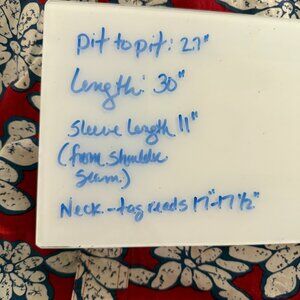 Pit to pit: 27"
Length: 30"
Sleeve Length 11"
(from shoulder
seam.)
Neck - tag reads 17"-17 1/2"